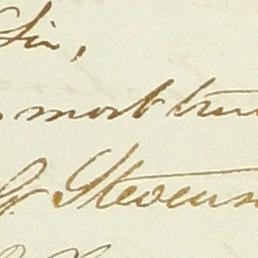 Sir,
most tru
Stevens